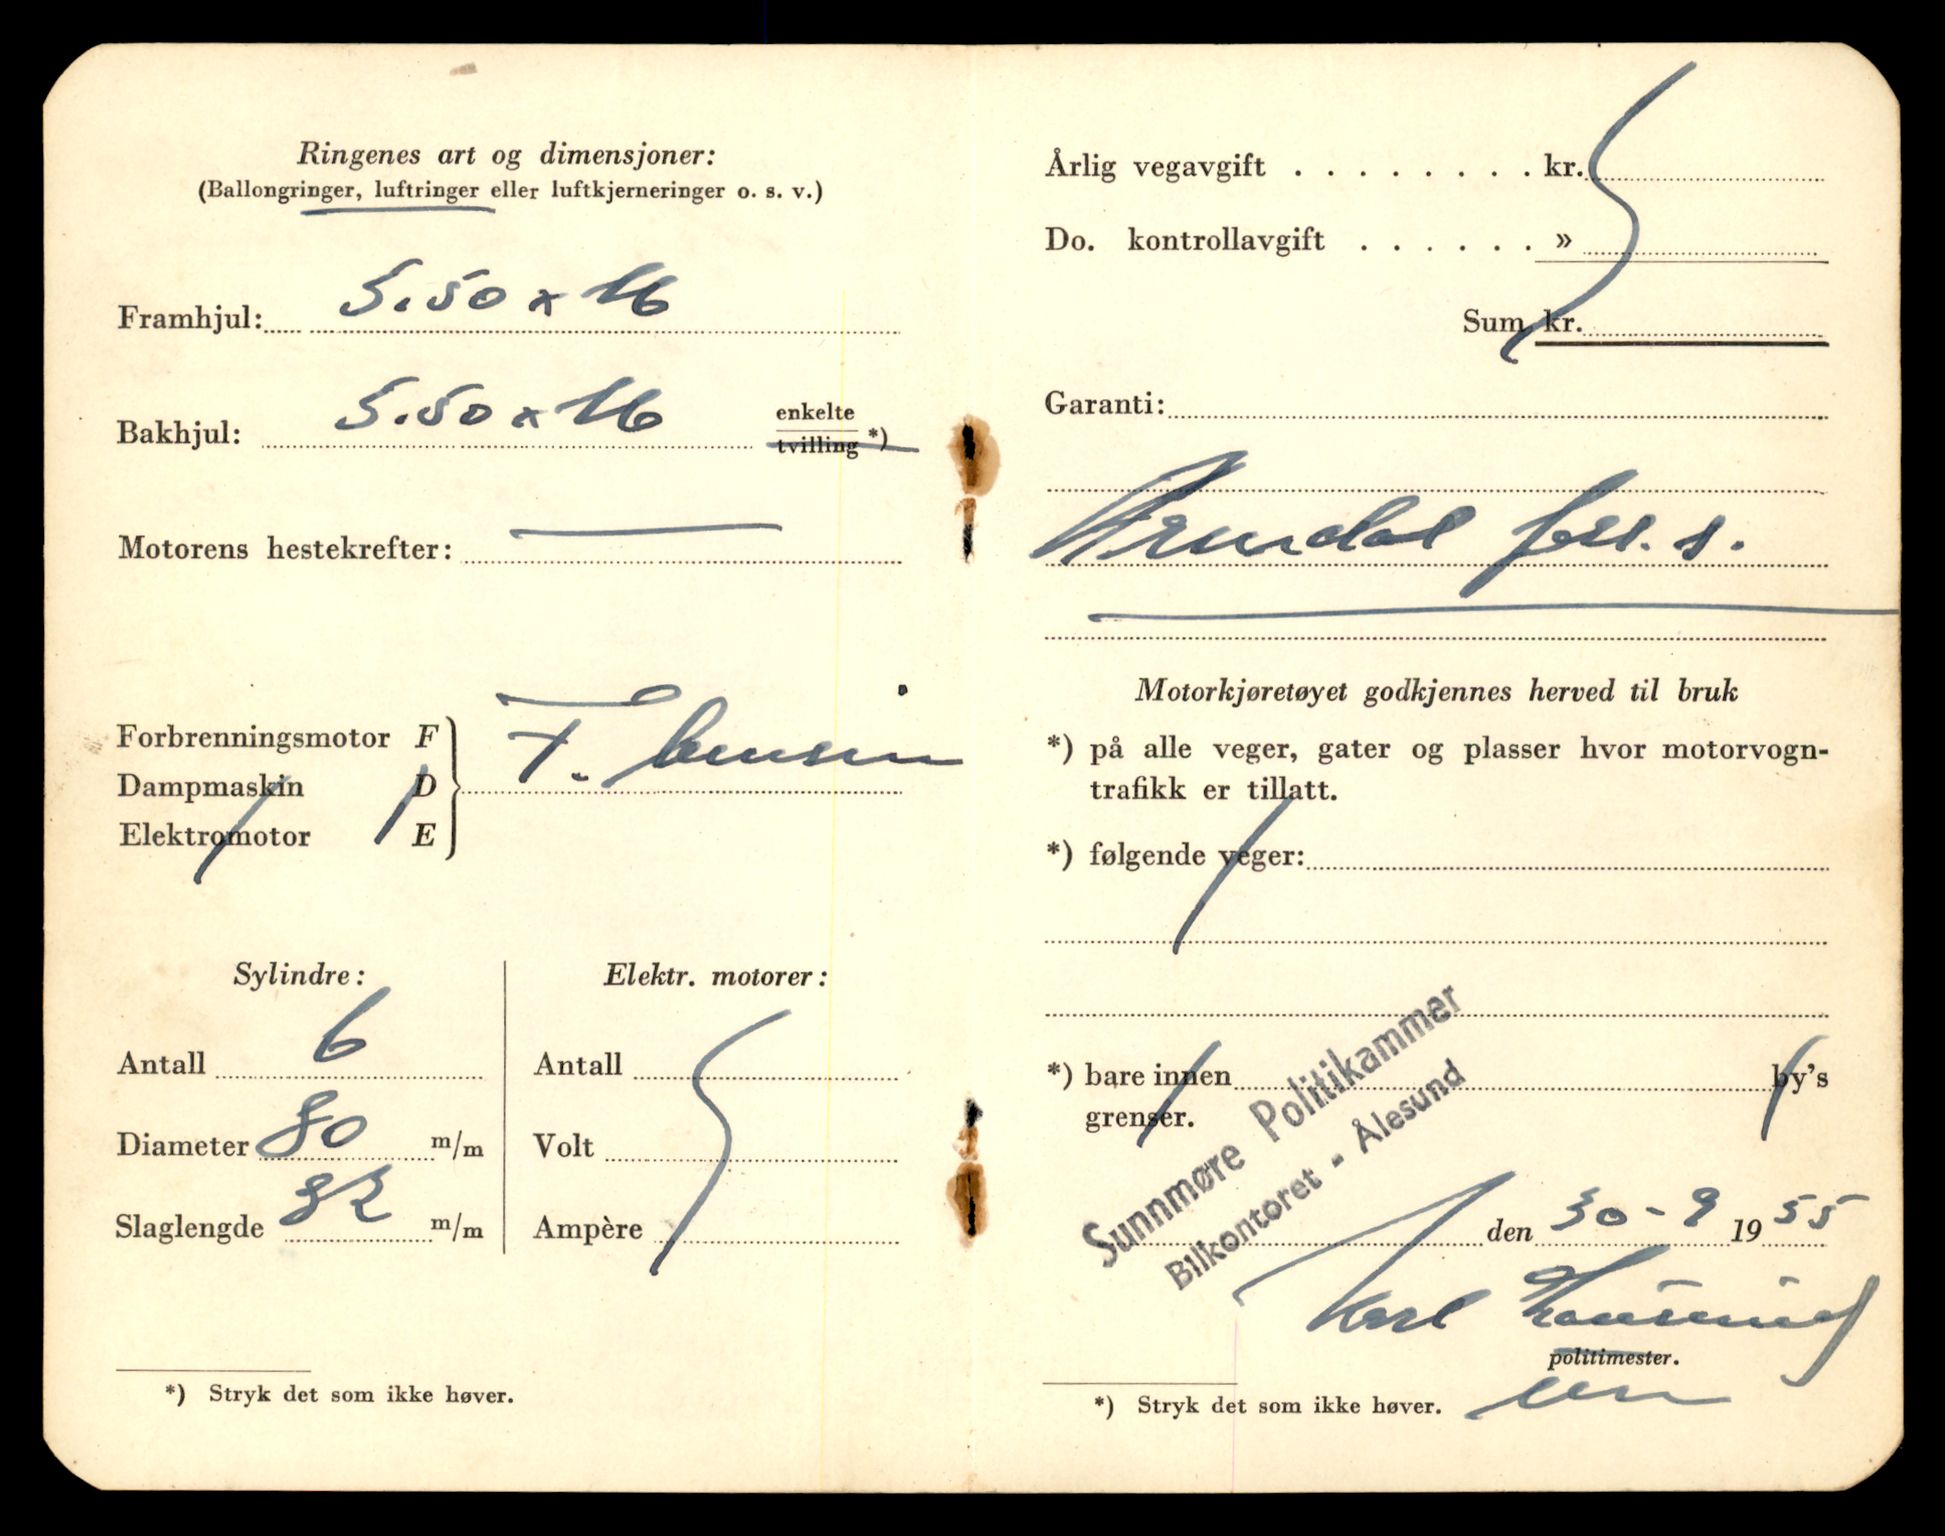 Ringenes art og dimensjoner:
(Ballongringer, luftringer eller luftkjerneringer o. s. v.)
Framhjul: 5.50 x 16
Bakhjul: 5.50 x 16 enkelte
tvilling *)
Motorens hestekrefter: —
Forbrenningsmotor F
Dampmaskin D
Elektromotor E
F. bensin
Sylindre:
Antall 6
Diameter 80 m/m
Slaglengde 82 m/m
Elektr. motorer:
Antall
Volt
Ampère
*) Stryk det som ikke høver.
Årlig vegavgift . . . . . . . . . kr.
Do. kontrollavgift . . . . . . »
Sum kr.
Garanti:
Arendal fors. s.
Motorkjøretøyet godkjennes herved til bruk
*) på alle veger, gater og plasser hvor motorvogn-
trafikk er tillatt.
*) følgende veger:
*) bare innen by's
grenser.
Sunnmøre Politikammer
Bilkontoret - Ålesund
den 30 - 9 1955
Karl
politimester.
*) Stryk det som ikke høver.